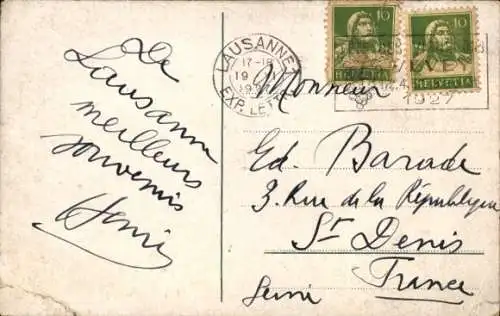 De
Lausanne
meilleurs
souvenirs
Henri
LAUSANNE 1
17-18
19
EXP. LETTR.
10
10
HELVETIA
HELVETIA
VEVEY
1927
Monsieur
Ed. Barade
3. Rue de la République
St Denis
France
Seine